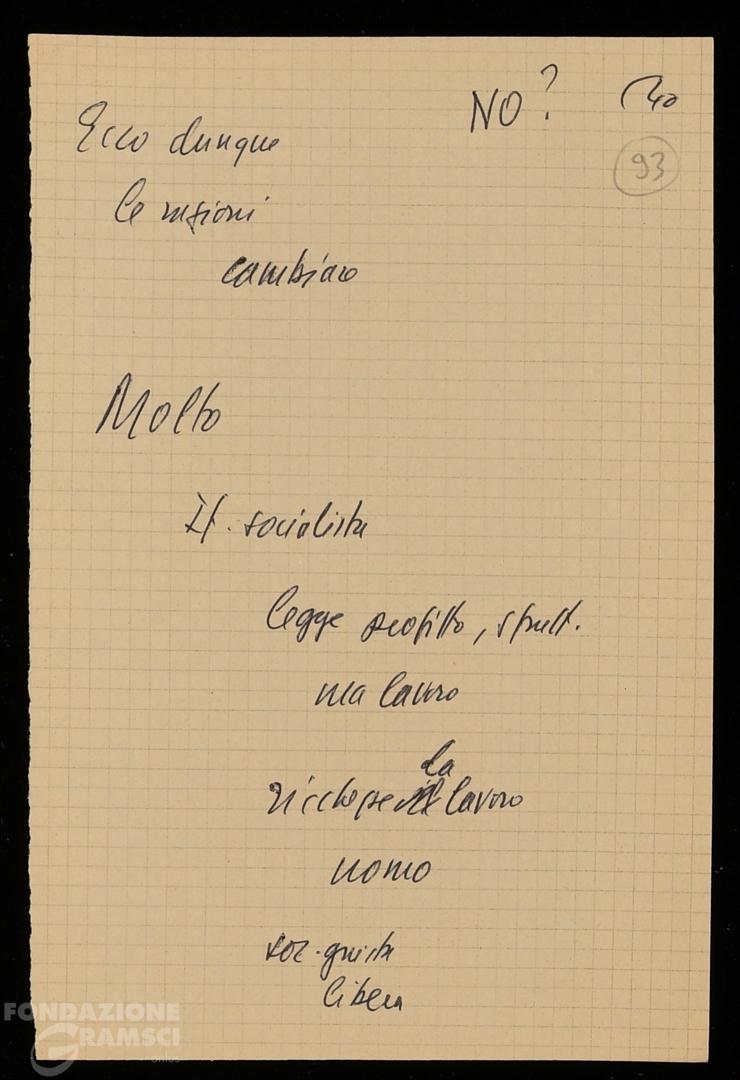 NO?
40
93
Ecco dunque
le ragioni
cambiare
Molto
It. socialista
legge profitto, sfrutt.
ma lavoro
da
ricchezze lavoro
uomo
soc. giusta
libera
FONDAZIONE
GRAMSCI
onlus